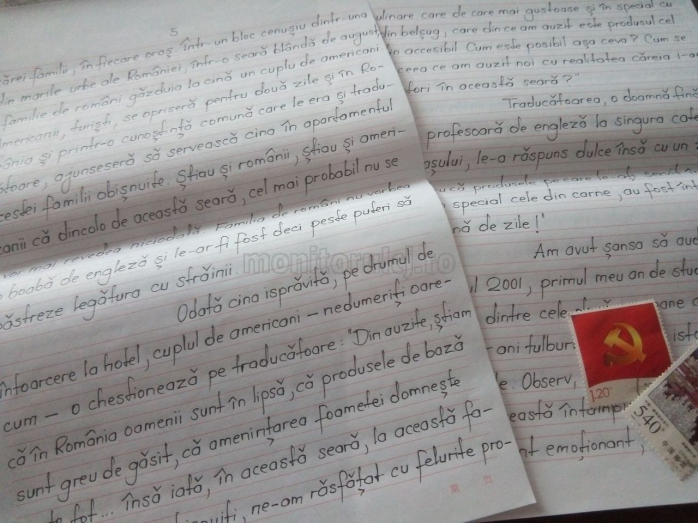 5
ărei familii, în fiecare oraș într-un bloc cenușiu dintr-una
din marile urbe ale României, într-o seară blândă de august
familie de români găzduia la cină un cuplu de americani
americani, turiști, se opriseră pentru două zile și în Ro-
mânia și printr-o cunoștință comună care le era și tradu-
cătoare, ajunseseră să servească cina în apartamentul
acestei familii obișnuite. Știau și românii, știau și ameri-
canii că dincolo de această seară, cel mai probabil nu se
vor mai revedea niciodată. Familia de români nu vorbea
o boabă de engleză și le-ar fi fost deci peste puteri să
păstreze legătura cu străinii.
Odată cina isprăvită, pe drumul de
întoarcere la hotel, cuplul de americani – nedumeriți oare-
cum – o chestionează pe traducătoare: "Din auzite, știam
că în România oamenii sunt în lipsă, că produsele de bază
sunt greu de găsit, că amenințarea foametei domnește
tot... însă iată, în această seară, la această fa-
ne-am răsfățat cu felurite pro-
linare care de care mai gustoase și în special cu
din belșug, care din ce am auzit este produsul cel
accesibil Cum este posibil așa ceva? Cum se
ceea ce am auzit noi cu realitatea căreia i-a
tori în această seară?"
Traducătoarea, o doamnă fină
profesoară de engleză la singura cate
așului, le-a răspuns dulce însă cu un
special cele din carne, au fost în
nă de zile!"
Am avut șansa să aud
2001, primul meu an de stud
dintre cele
ani tulbur
Observ,
eastă întâmpl
nt emoționant,
monitorulcj.ro
1.20
540